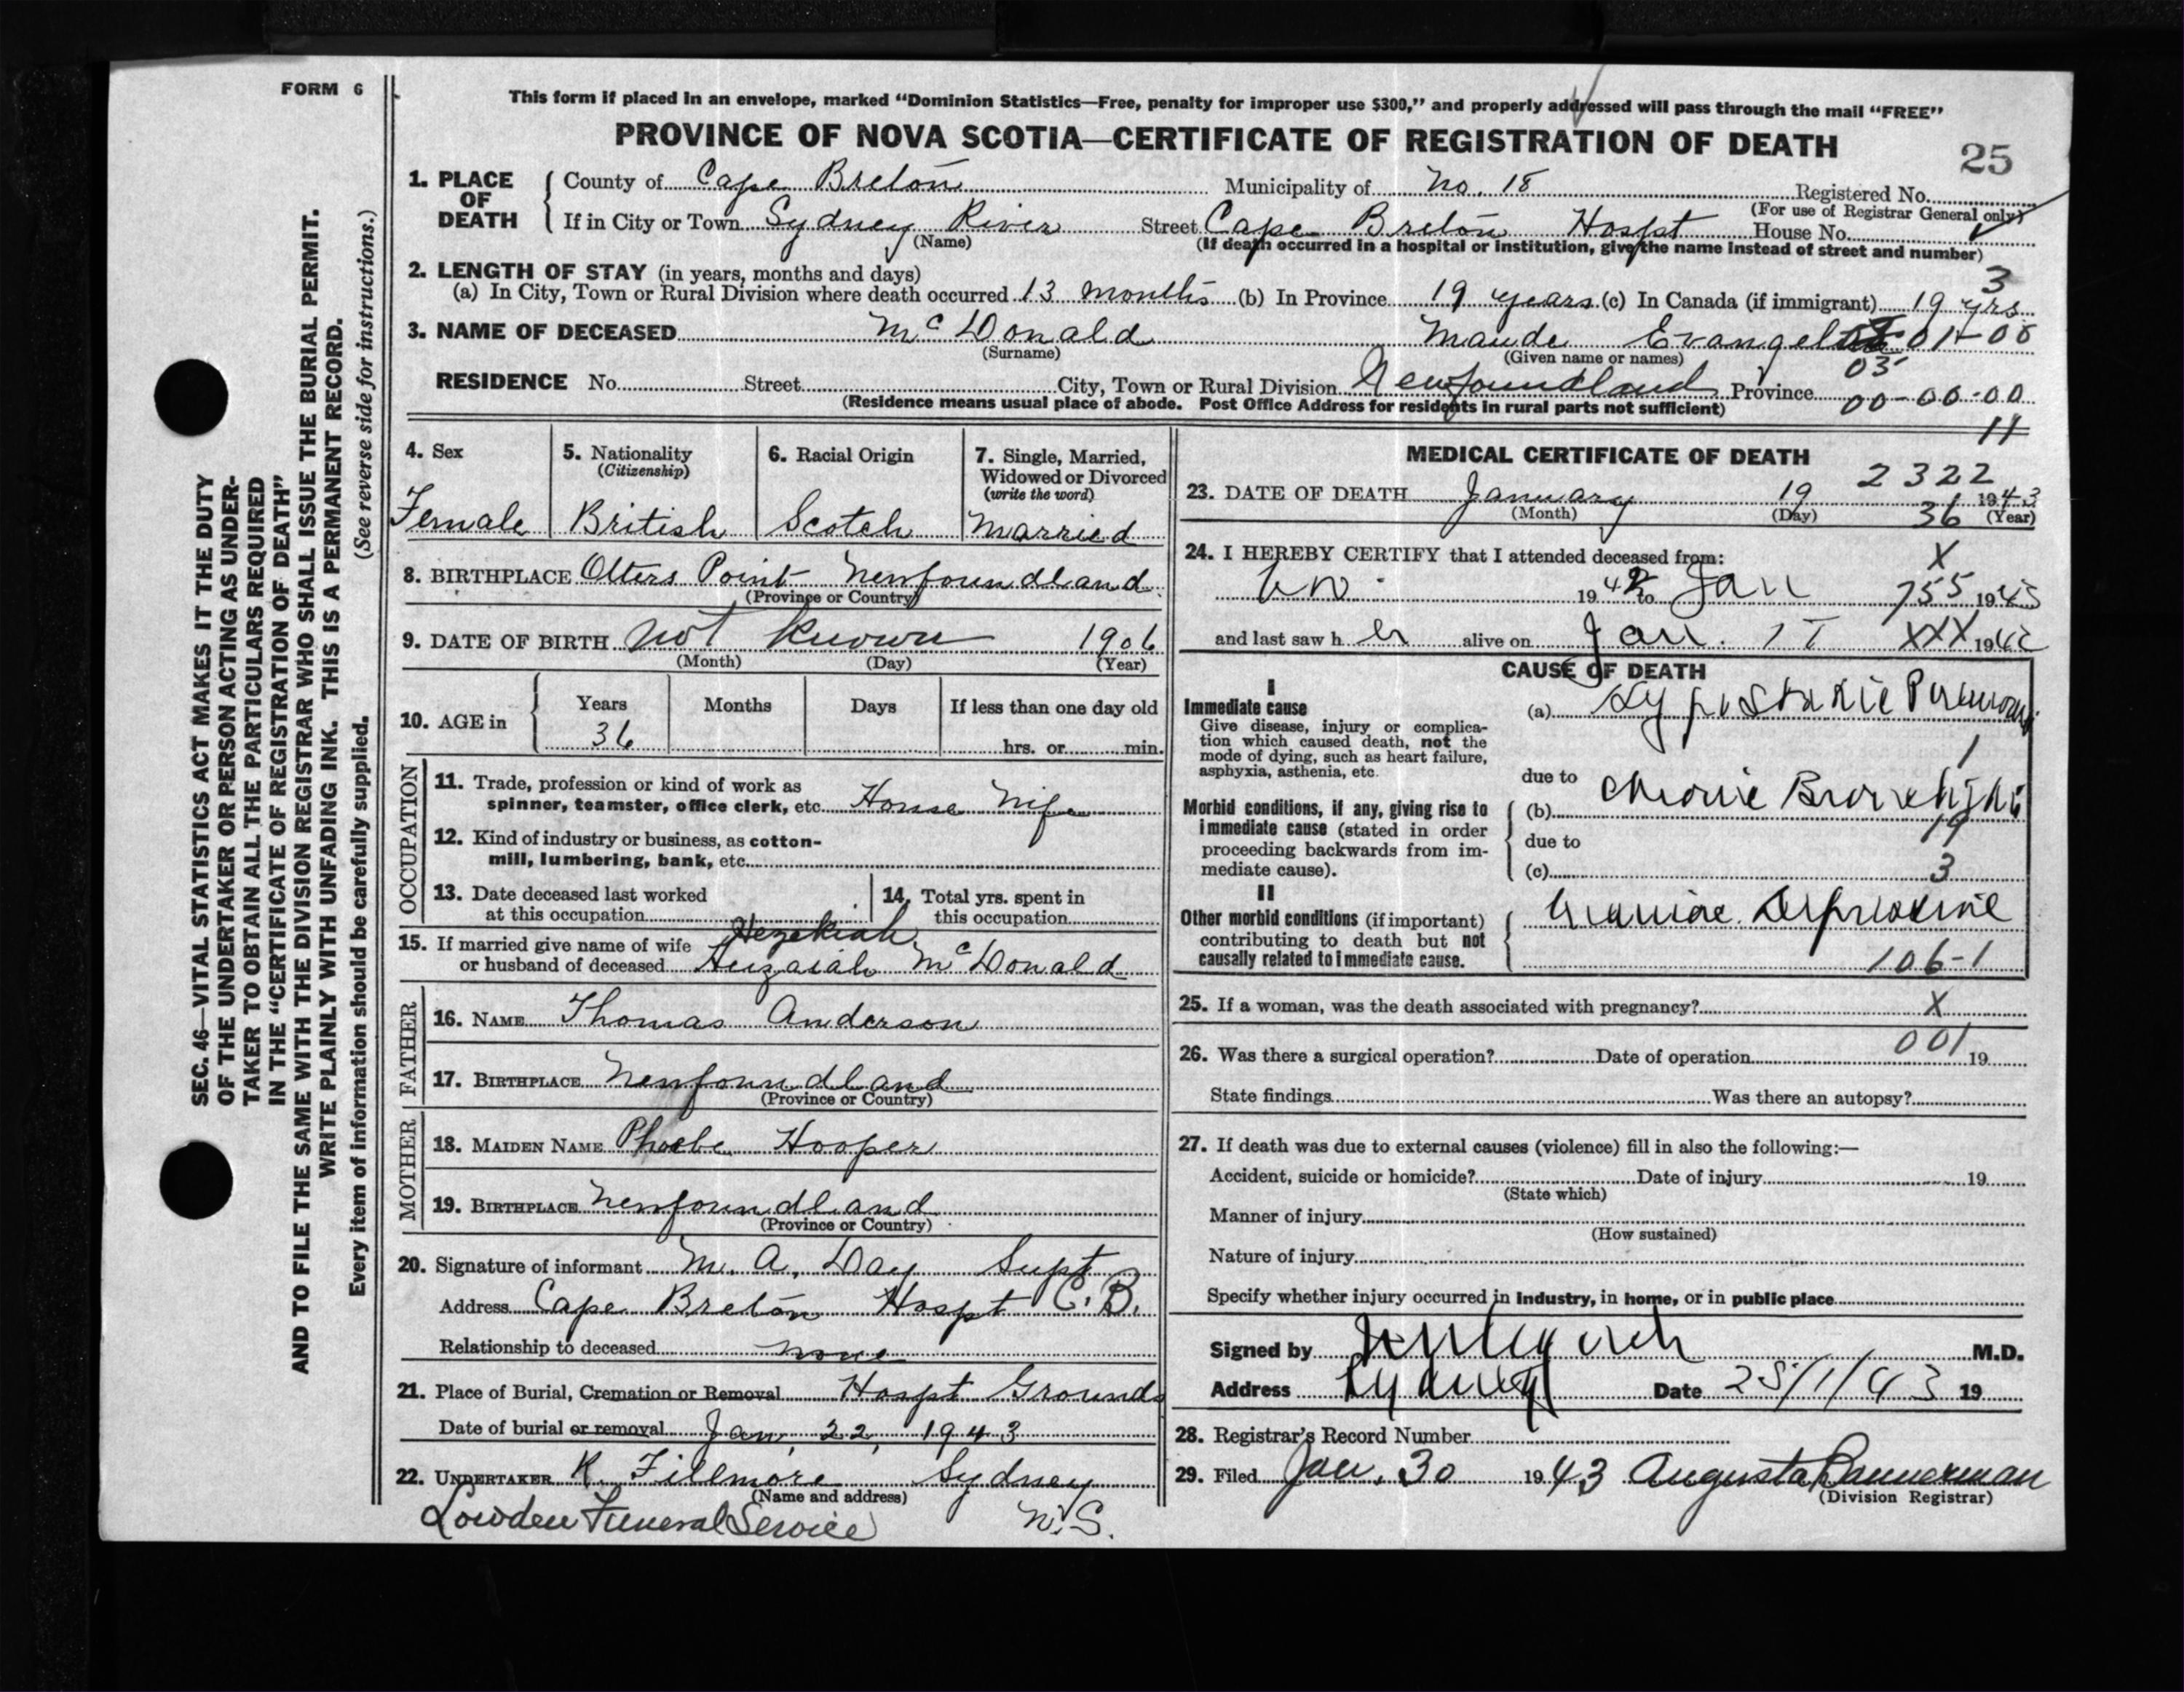 FORM 6
This form if placed in an envelope, marked “Dominion Statistics—Free, penalty for improper use $300,” and properly addressed will pass through the mail “FREE”
PROVINCE OF NOVA SCOTIA—CERTIFICATE OF REGISTRATION OF DEATH
25
SEC. 46—VITAL STATISTICS ACT MAKES IT THE DUTY
OF THE UNDERTAKER OR PERSON ACTING AS UNDER-
TAKER TO OBTAIN ALL THE PARTICULARS REQUIRED
IN THE “CERTIFICATE OF REGISTRATION OF DEATH”
AND TO FILE THE SAME WITH THE DIVISION REGISTRAR WHO SHALL ISSUE THE BURIAL PERMIT.
WRITE PLAINLY WITH UNFADING INK. THIS IS A PERMANENT RECORD.
Every item of information should be carefully supplied. (See reverse side for instructions.)
1. PLACE OF DEATH
County of Cape Breton Municipality of No. 18 Registered No.
(For use of Registrar General only)
If in City or Town Sydney River Street Cape Breton Hospt House No.
(Name) (If death occurred in a hospital or institution, give the name instead of street and number)
2. LENGTH OF STAY (in years, months and days) 3
(a) In City, Town or Rural Division where death occurred 13 months (b) In Province 19 years (c) In Canada (if immigrant) 19 yrs
3. NAME OF DECEASED McDonald Maude 01-00
(Surname) (Given name or names) 03
RESIDENCE No. Street City, Town or Rural Division Newfoundland Province 00-00-00
(Residence means usual place of abode. Post Office Address for residents in rural parts not sufficient)
11
4. Sex
Female
5. Nationality
(Citizenship)
British
6. Racial Origin
Scotch
7. Single, Married,
Widowed or Divorced
(write the word)
Married
8. BIRTHPLACE Otters Point Newfoundland
(Province or Country)
9. DATE OF BIRTH not known 1906
(Month) (Day) (Year)
10. AGE in Years Months Days If less than one day old
36 hrs. or min.
OCCUPATION
11. Trade, profession or kind of work as
spinner, teamster, office clerk, etc. House Wife
12. Kind of industry or business, as cotton-
mill, lumbering, bank, etc.
13. Date deceased last worked
at this occupation
14. Total yrs. spent in
this occupation
Hezekiah
15. If married give name of wife
or husband of deceased McDonald
FATHER
16. NAME Thomas Anderson
17. BIRTHPLACE Newfoundland
(Province or Country)
MOTHER
18. MAIDEN NAME Phoebe Hooper
19. BIRTHPLACE Newfoundland
(Province or Country)
20. Signature of informant M. A. Day Supt
Address Cape Breton Hospt C.B.
Relationship to deceased none
21. Place of Burial, Cremation or Removal Hospt Grounds
Date of burial or removal Jan, 22, 1943
22. UNDERTAKER K. Fillmore Sydney
(Name and address)
Lowden Funeral Service N.S.
MEDICAL CERTIFICATE OF DEATH
2322
23. DATE OF DEATH January 19 1943
(Month) (Day) 36 (Year)
24. I HEREBY CERTIFY that I attended deceased from:
X
1942 to Jan 755 1943
and last saw her alive on Jan. XXX 194
CAUSE OF DEATH
I
Immediate cause
Give disease, injury or complica-
tion which caused death, not the
mode of dying, such as heart failure,
asphyxia, asthenia, etc.
(a) Hypostatic Pneumonia
1
due to
Morbid conditions, if any, giving rise to
immediate cause (stated in order
proceeding backwards from im-
mediate cause).
(b) Chronic Bronchitis
19
due to
(c) 3
II
Other morbid conditions (if important)
contributing to death but not
causally related to immediate cause.
Maniac Depressive
106-1
25. If a woman, was the death associated with pregnancy? X
001
26. Was there a surgical operation? Date of operation 19
State findings Was there an autopsy?
27. If death was due to external causes (violence) fill in also the following:—
Accident, suicide or homicide? Date of injury 19
(State which)
Manner of injury
(How sustained)
Nature of injury
Specify whether injury occurred in Industry, in home, or in public place
Signed by M.D.
Address Sydney Date 25/1/43 19
28. Registrar’s Record Number
29. Filed Jan. 30 1943 Augusta Bannerman
(Division Registrar)